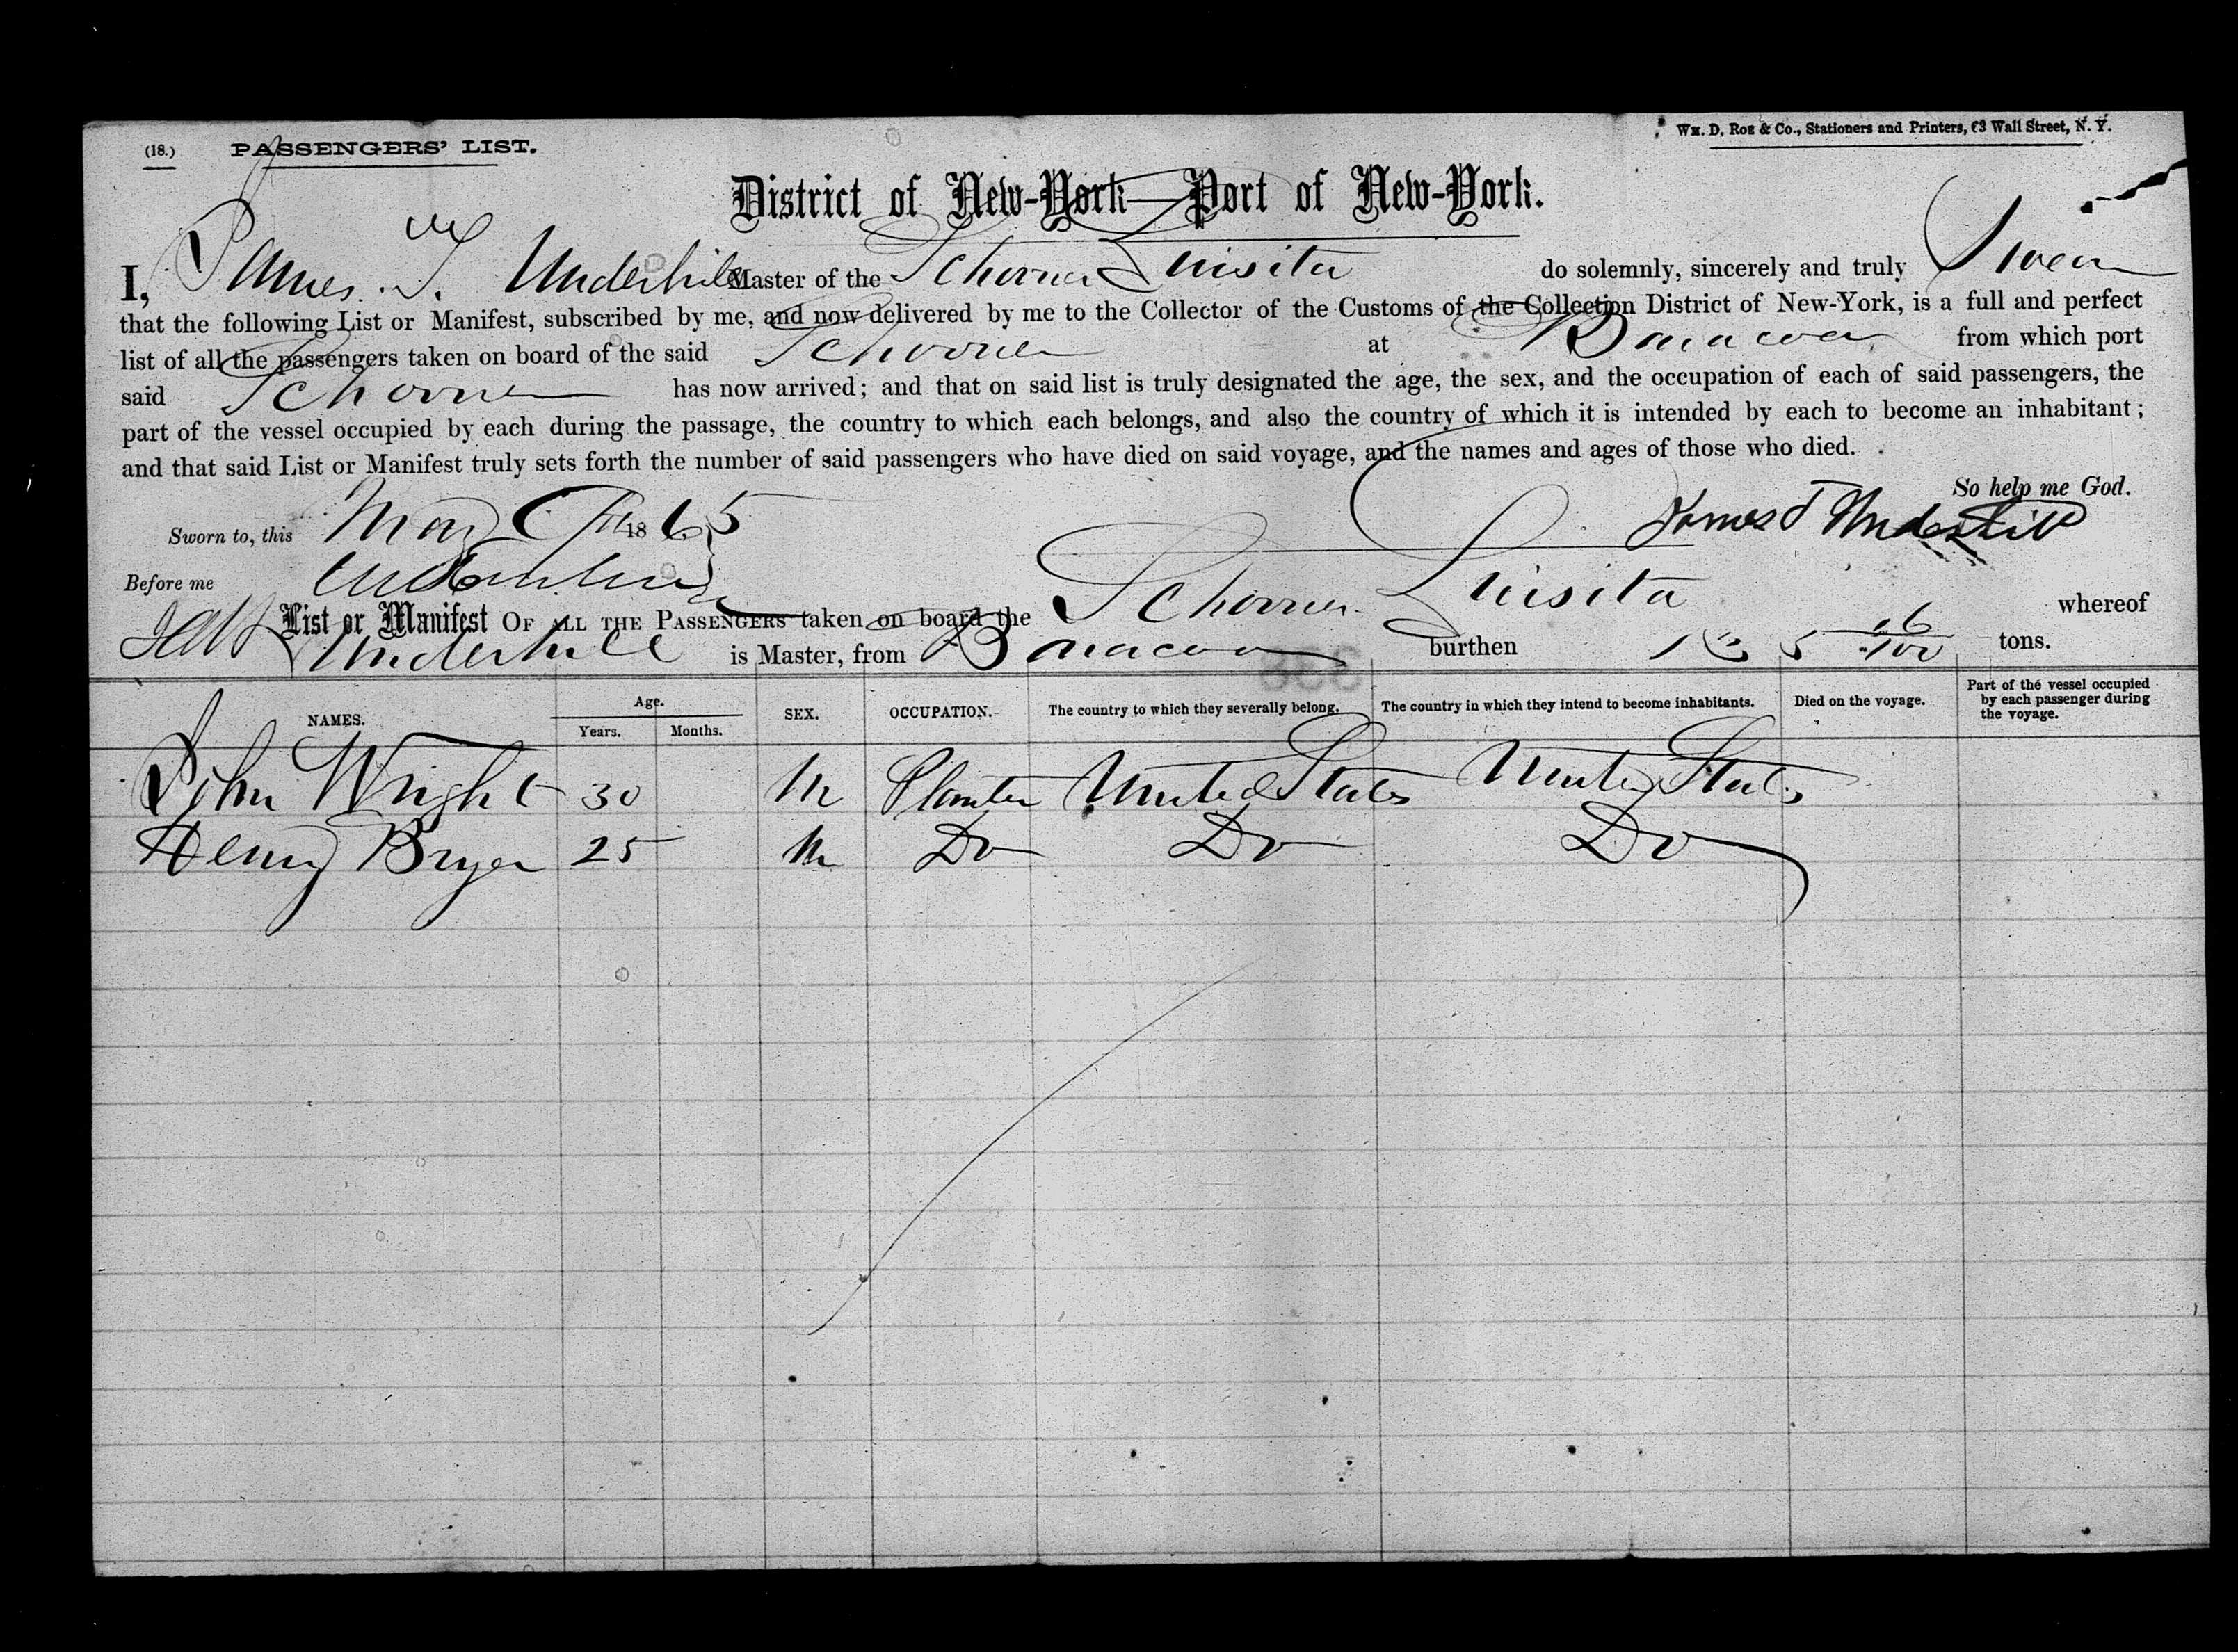 (18.) PASSENGERS' LIST.
Wm. D. Roe & Co., Stationers and Printers, 63 Wall Street, N. Y.
District of New-York—Port of New-York.
I, James T. Underhill Master of the Schooner Luisita do solemnly, sincerely and truly Swear
that the following List or Manifest, subscribed by me, and now delivered by me to the Collector of the Customs of the Collection District of New-York, is a full and perfect
list of all the passengers taken on board of the said Schooner at Baracoa from which port
said Schooner has now arrived; and that on said list is truly designated the age, the sex, and the occupation of each of said passengers, the
part of the vessel occupied by each during the passage, the country to which each belongs, and also the country of which it is intended by each to become an inhabitant;
and that said List or Manifest truly sets forth the number of said passengers who have died on said voyage, and the names and ages of those who died.
So help me God.
Sworn to, this May 1865 James T Underhill
Before me
List or Manifest OF ALL THE PASSENGERS taken on board the Schooner Luisita whereof
Underhill is Master, from Baracoa burthen tons.
NAMES. Age. Years. Months. SEX. OCCUPATION. The country to which they severally belong. The country in which they intend to become inhabitants. Died on the voyage. Part of the vessel occupied by each passenger during the voyage.
John Wright 30 M Planter United States United States
Henry Bryer 25 M Do Do Do